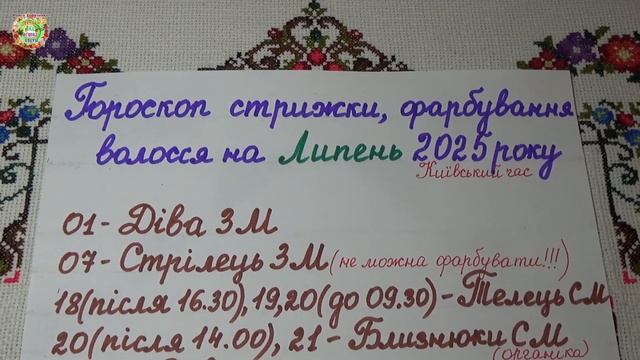 Гороскоп стрижки, фарбування
волосся на Липень 2025 року
Київський час
01 - Діва З М
07 - Стрілець З М (не можна фарбувати!!!)
18 (після 16.30), 19, 20 (до 09.30) - Телець С М
20 (після 14.00), 21 - Близнюки С М
(органіка)